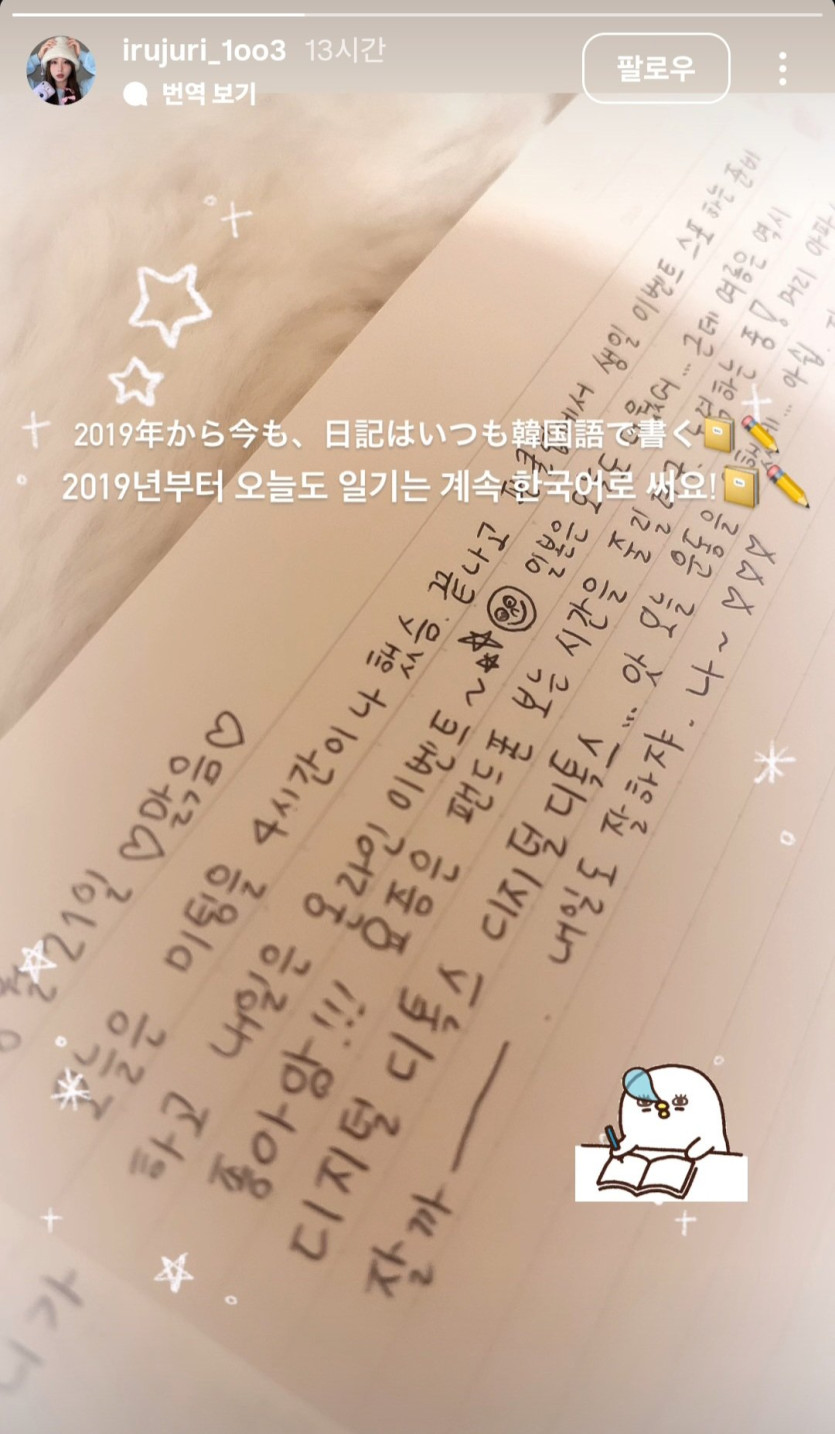 irujuri_1oo3 13시간
팔로우
번역 보기
2019年から今も、日記はいつも韓国語で書く
2019년부터 오늘도 일기는 계속 한국어로 써요!
21일 ♡맑음♡
오늘은 미팅을 4시간이나 했음. 끝나고 생일 이벤트 스포 하는 준비
하고 내일은 온라인 이벤트~ 일본은 근데 여름은 역시
좋아앙!!! 요즘은 핸드폰 보는 시간을 줄이 하는 중! 머리 아파
디지털 디톡스 디지털 디톡스... 앗 오늘 운동을 아쉽
잘까 . 내일도 잘하쟈. 나~
니가